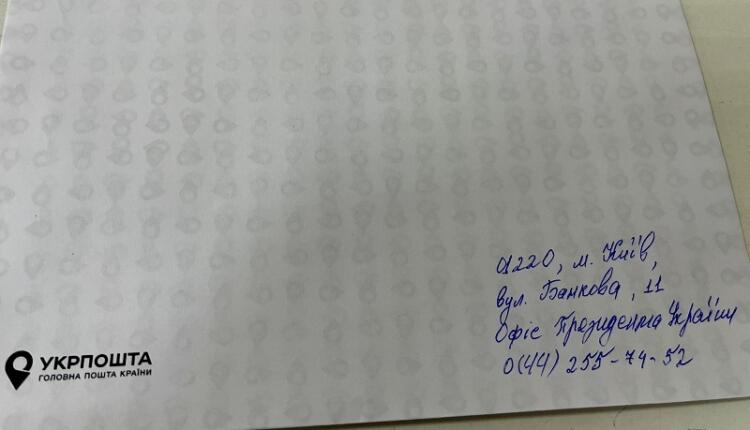 01220, м. Київ,
вул. Банкова, 11
Офіс Президента України
0(44) 255-74-52
УКРПОШТА
ГОЛОВНА ПОШТА КРАЇНИ